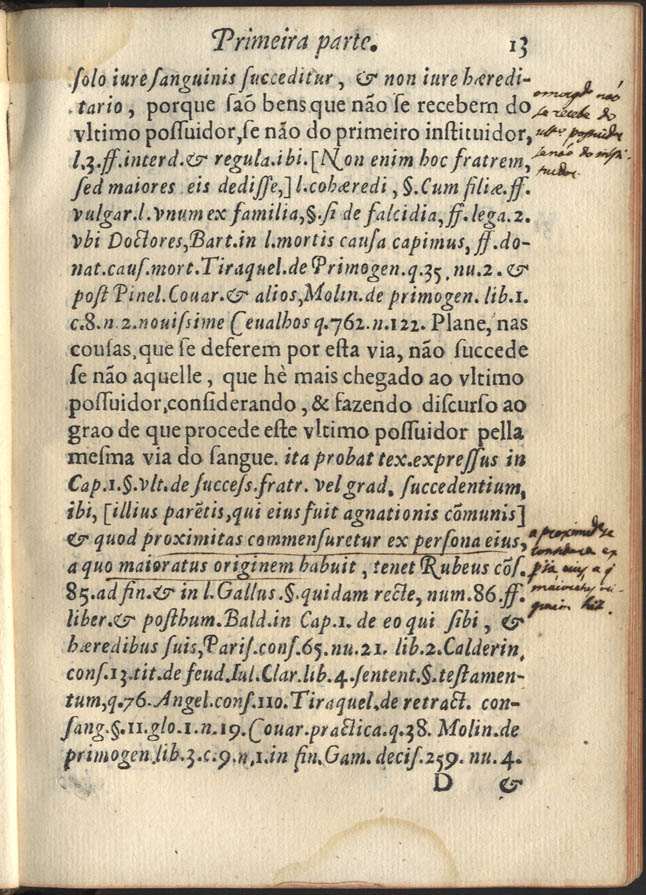 Primeira parte. 13
ſolo iure ſanguinis ſucceditur, & non iure hæredi-
tario, porque ſaõ bens que não ſe recebem do
vltimo poſſuidor, ſe não do primeiro inſtituidor,
l.3.ff.interd.& regula.ibi.[Non enim hoc fratrem,
ſed maiores eis dediſſe,] l.cohæredi, §.Cum filiæ.ff.
vulgar.l.vnum ex familia,§.ſi de falcidia, ff.lega.2.
vbi Doctores,Bart.in l.mortis cauſa capimus, ff.do-
nat.cauſ.mort.Tiraquel.de Primogen.q.35.nu.2.&
poſt Pinel.Couar.& alios,Molin.de primogen.lib.1.
c.8.n.2.nouiſsime Ceualhos q.762.n.122. Plane, nas
couſas, que ſe deferem por eſta via, não ſuccede
ſe não aquelle, que hè mais chegado ao vltimo
poſſuidor,conſiderando, & fazendo diſcurſo ao
grao de que procede eſte vltimo poſſuidor pella
meſma via do ſangue. ita probat tex.expreſſus in
Cap.1.§.vlt.de ſucceſs.fratr. vel grad. ſuccedentium,
ibi, [illius parẽtis,qui eius fuit agnationis cõmunis]
& quod proximitas commenſuretur ex perſona eius,
a quo maioratus originem habuit, tenet Rubeus cõſ.
85.ad fin.& in l.Gallus.§.quidam recte, num.86.ff.
liber.& poſthum.Bald.in Cap.1. de eo qui ſibi, &
hæredibus ſuis,Pariſ.conſ.65.nu.21. lib.2.Calderin,
conſ.13.tit.de feud.Iul.Clar.lib.4.ſentent.§.teſtamen-
tum,q.76.Angel.conſ.110.Tiraquel.de retract. con-
ſang.§.11.glo.1.n.19.Couar.practica.q.38. Molin.de
primogen.lib.3.c.9.n.1.in fin.Gam.deciſ.259. nu.4.
D &
não
ſe recebe do
ult.º poſſuidor
ſenão do inſti-
tuidor.
a proximid.e ſe
conſidera ex